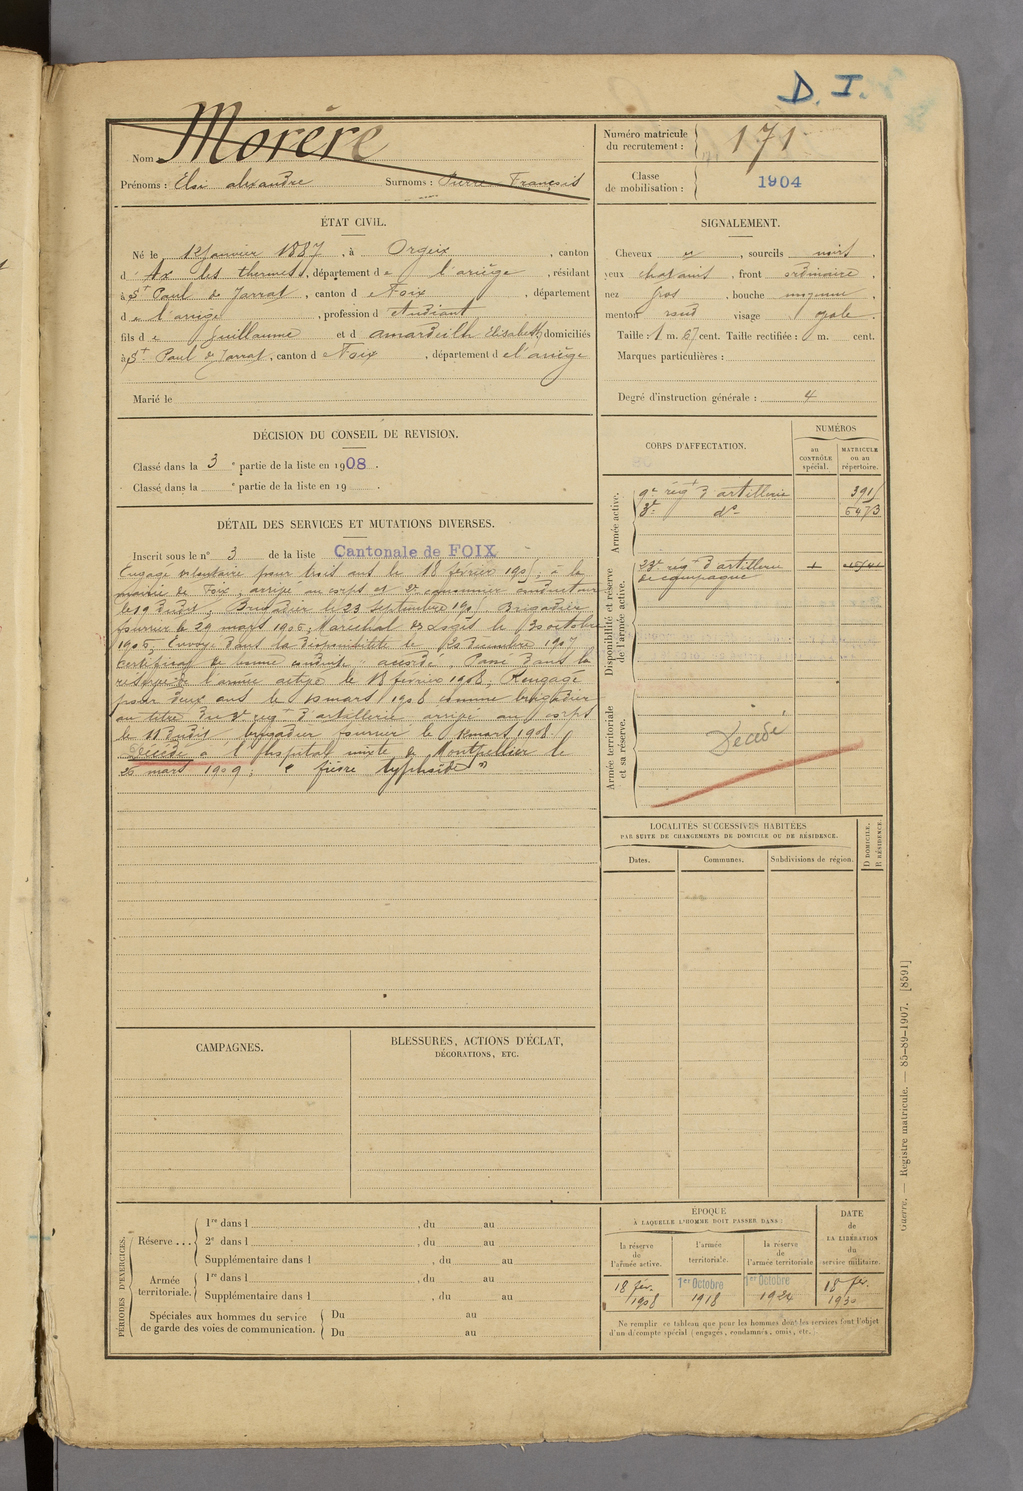 D. I.
Nom Morère
Prénoms : Eloi alexandre Surnoms : Pierre François
Numéro matricule du recrutement : 171
Classe de mobilisation : 1904
ÉTAT CIVIL.
Né le 12 Janvier 1887, à Orgeix, canton
d'Ax les thermes, département de l'ariège, résidant
à St Paul de Jarrat, canton de Foix, département
de l'ariège, profession d'étudiant
fils de Guillaume et d'amardeilh Elisabeth, domiciliés
à St Paul de Jarrat, canton de Foix, département de l'ariège
Marié le
SIGNALEMENT.
Cheveux et, sourcils noirs,
yeux chatains, front ordinaire,
nez gros, bouche moyenne,
menton rond visage ovale.
Taille : 1 m. 67 cent. Taille rectifiée : m. cent.
Marques particulières :
Degré d'instruction générale : 4
DÉCISION DU CONSEIL DE REVISION.
Classé dans la 3e partie de la liste en 1908.
Classé dans la e partie de la liste en 19 .
DÉTAIL DES SERVICES ET MUTATIONS DIVERSES.
Inscrit sous le n° 3 de la liste Cantonale de FOIX
Engagé volontaire pour trois ans le 18 février 190 , à la
mairie de Foix, arrivé au corps et 2e canonnier conducteur
le 19 dudit, Brigadier le 23 septembre 190 Brigadier
fourrier le 29 mars 1906, Maréchal des Logis le 30 octobre
1906, Envoyé dans la disponibilité le décembre 1907
Certificat de bonne conduite accordé. Passé dans la
réserve de l'armée active le 18 février 1908, Rengagé
pour deux ans le mars 1908 comme brigadier
au titre du 3e régt d'artillerie arrivé au corps
le 11 dudit brigadier fourrier le mars 1908.
Décédé à l'hospital mixte de Montpellier le
mars 1909; fièvre typhoïde
CORPS D'AFFECTATION.
NUMÉROS
au CONTRÔLE spécial.
MATRICULE ou au répertoire.
Armée active.
9e régt d'artillerie 391
3e do 5473
Disponibilité et réserve de l'armée active.
23e régt d'artillerie
de campagne
Armée territoriale et sa réserve.
Décédé
LOCALITÉS SUCCESSIVES HABITÉES
PAR SUITE DE CHANGEMENTS DE DOMICILE OU DE RÉSIDENCE.
Dates. Communes. Subdivisions de région. D DOMICILE. R RÉSIDENCE.
CAMPAGNES.
BLESSURES, ACTIONS D'ÉCLAT,
DÉCORATIONS, ETC.
PÉRIODES D'EXERCICES.
Réserve...
1re dans l , du au
2e dans l , du au
Supplémentaire dans l , du au
Armée territoriale.
1re dans l , du au
Supplémentaire dans l , du au
Spéciales aux hommes du service
de garde des voies de communication.
Du au
Du au
ÉPOQUE
À LAQUELLE L'HOMME DOIT PASSER DANS :
la réserve de l'armée active.
l'armée territoriale.
la réserve de l'armée territoriale
DATE de LA LIBÉRATION du service militaire.
18 fév. 1908
1er Octobre 1918
1er Octobre 1924
18 fév. 1930
Ne remplir ce tableau que pour les hommes dont les services font l'objet
d'un décompte spécial (engagés, condamnés, omis, etc.
Guerre. — Registre matricule. — 85-89-1907. [8591]